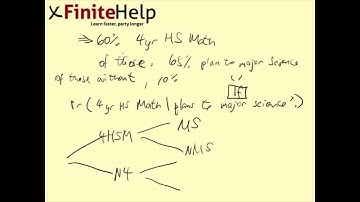 FiniteHelp
Learn faster, party longer
⇒ 60% 4yr HS Math
of those, 65% plan to major science
of those without, 10%
If
Pr(4yr HS Math | plans to major science)
4HSM
MS
NMS
N4